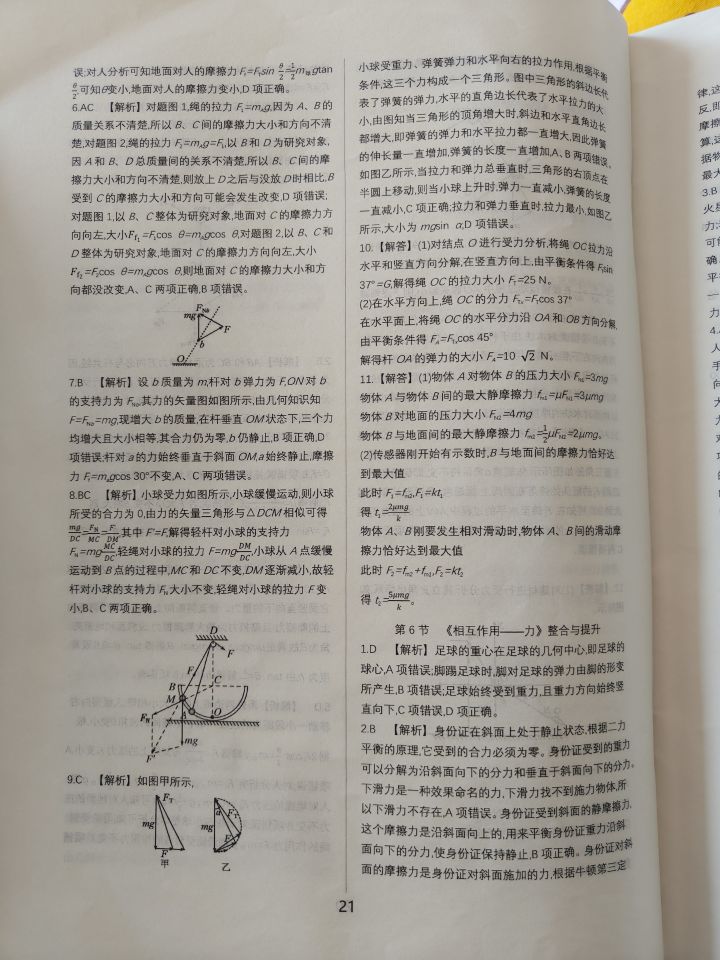 误;对人分析可知地面对人的摩擦力 F₁=Fₜsin θ/2=1/2m甲gtan
θ/2,可知θ变小,地面对人的摩擦力变小,D 项正确。
6.AC 【解析】对题图 1,绳的拉力 F₁=mₐg,因为 A、B 的
质量关系不清楚,所以 B、C 间的摩擦力大小和方向不清
楚,对题图 2,绳的拉力 F₂=mₐg=F₁,以 B 和 D 为研究对象,
因 A 和 B、D 总质量间的关系不清楚,所以 B、C 间的摩
擦力大小和方向不清楚,则放上 D 之后与没放 D 时相比,B
受到 C 的摩擦力大小和方向可能会发生改变,D 项错误;
对题图 1,以 B、C 整体为研究对象,地面对 C 的摩擦力方
向向左,大小Ff₁=F₁cos θ=mₐgcos θ,对题图 2,以 B、C 和
D 整体为研究对象,地面对 C 的摩擦力方向向左,大小
Ff₂=F₂cos θ=mₐgcos θ,则地面对 C 的摩擦力大小和方
向都没改变,A、C 两项正确,B 项错误。
F_Nb
mg
F
b
O
7.B 【解析】设 b 质量为 m,杆对 b 弹力为 F,ON 对 b
的支持力为 F_Nb,其力的矢量图如图所示,由几何识知
F=F_Nb=mg,现增大 b 的质量,在杆垂直 OM 状态下,三个力
均增大且大小相等,其合力仍为零,b 仍静止,B 项正确,D
项错误;杆对 a 的力始终垂直于斜面 OM,a 始终静止,摩擦
力 F_f=mₐgcos 30°不变,A、C 两项错误。
8.BC 【解析】小球受力如图所示,小球缓慢运动,则小球
所受的合力为 0,由力的矢量三角形与△DCM 相似可得
mg/DC=F_N/MC=F'/DM,其中 F'=F,解得轻杆对小球的支持力
F_N=mgMC/DC,轻绳对小球的拉力 F=mgDM/DC,小球从 A 点缓慢
运动到 B 点的过程中,MC 和 DC 不变,DM 逐渐减小,故轻
杆对小球的支持力 F_N 大小不变,轻绳对小球的拉力 F 变
小,B、C 两项正确。
D
F
F
B
C
M
F_N
A
O
mg
F'
9.C 【解析】如图甲所示,
F_T
mg
F
甲
α
F_T
mg
F
乙
小球受重力、弹簧弹力和水平向右的拉力作用,根据平衡
条件,这三个力构成一个三角形。图中三角形的斜边长代
表了弹簧的弹力,水平的直角边长代表了水平拉力的大
小,由图知当三角形的顶角增大时,斜边和水平直角边长
都增大,即弹簧的弹力和水平拉力都一直增大,因此弹簧
的伸长量一直增加,弹簧的长度一直增加,A、B 两项错误。
如图乙所示,当拉力和弹力总垂直时,三角形的右顶点在
半圆上移动,则当小球上升时,弹力一直减小,弹簧的长度
一直减小,C 项正确;拉力和弹力垂直时,拉力最小,如图乙
所示,大小为 mgsin α,D 项错误。
10.【解答】(1)对结点 O 进行受力分析,将绳 OC 拉力沿
水平和竖直方向分解,在竖直方向上,由平衡条件得 Fₜsin
37°=G,解得绳 OC 的拉力大小 Fₜ=25 N。
(2)在水平方向上,绳 OC 的分力 Fₜₓ=Fₜcos 37°
在水平面上,将绳 OC 的水平分力沿 OA 和 OB 方向分解,
由平衡条件得 F_A=Fₜₓcos 45°
解得杆 OA 的弹力的大小 F_A=10 √2 N。
11.【解答】(1)物体 A 对物体 B 的压力大小 F_N1=3mg
物体 A 与物体 B 间的最大静摩擦力 f_m1=μF_N1=3μmg
物体 B 对地面的压力大小 F_N2=4mg
物体 B 与地面间的最大静摩擦力 f_m2=1/2μF_N2=2μmg。
(2)传感器刚开始有示数时,B 与地面间的摩擦力恰好达
到最大值
此时 F₁=f_m2,F₁=kt₁
得 t₁=2μmg/k
物体 A、B 刚要发生相对滑动时,物体 A、B 间的滑动摩
擦力恰好达到最大值
此时 F₂=f_m2+f_m1,F₂=kt₂
得 t₂=5μmg/k。
第 6 节 《相互作用——力》整合与提升
1.D 【解析】足球的重心在足球的几何中心,即足球的
球心,A 项错误;脚踢足球时,脚对足球的弹力由脚的形变
所产生,B 项错误;足球始终受到重力,且重力方向始终竖
直向下,C 项错误,D 项正确。
2.B 【解析】身份证在斜面上处于静止状态,根据二力
平衡的原理,它受到的合力必须为零。身份证受到的重力
可以分解为沿斜面向下的分力和垂直于斜面向下的分力。
下滑力是一种效果命名的力,下滑力找不到施力物体,所
以下滑力不存在,A 项错误。身份证受到斜面的静摩擦力,
这个摩擦力是沿斜面向上的,用来平衡身份证重力沿斜
面向下的分力,使身份证保持静止,B 项正确。身份证对斜
面的摩擦力是身份证对斜面施加的力,根据牛顿第三定
21